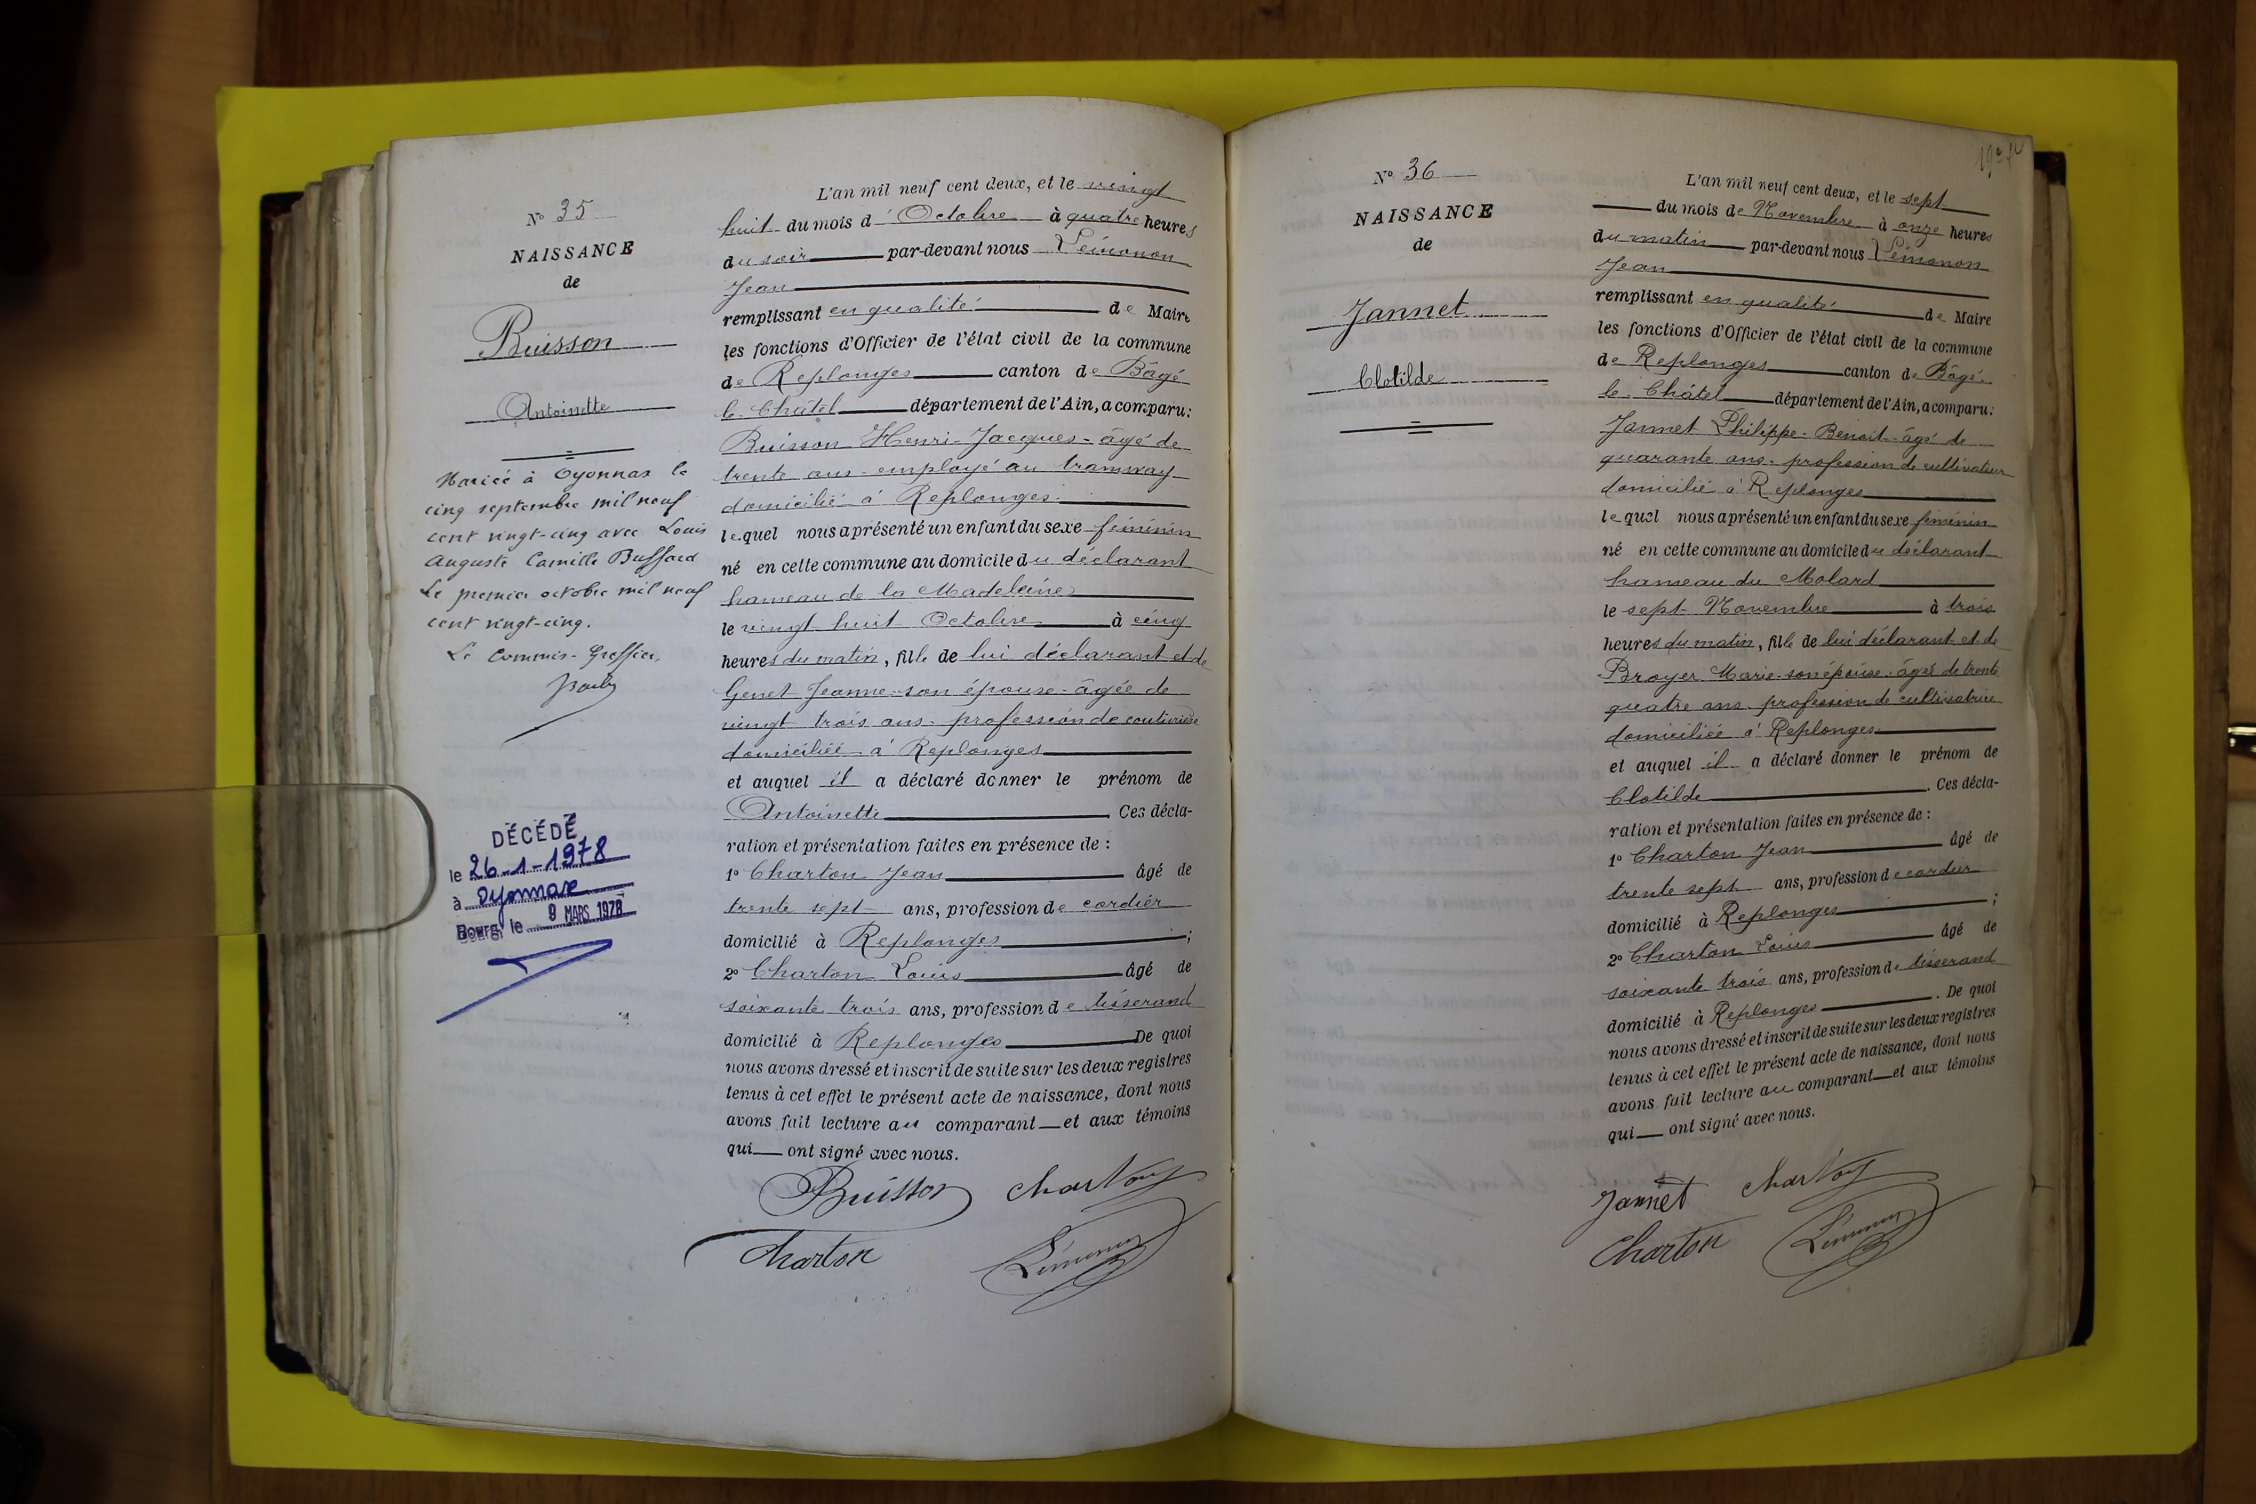 N° 35
NAISSANCE
de
Buisson
Antoinette
Mariée à Oyonnax le
cinq septembre mil neuf
cent vingt-cinq avec Louis
Auguste Camille Buffard
Le premier octobre mil neuf
cent vingt-cinq.
Le Commis-Greffier,
DÉCÉDÉ
le 26-1-1978
à Oyonnax
Bourg, le 9 MARS 1978
L'an mil neuf cent deux, et le vingt
huit du mois d' Octobre à quatre heures
du soir par-devant nous Lémonon
Jean
remplissant en qualité de Maire
les fonctions d'Officier de l'état civil de la commune
de Replonges canton de Bâgé
le Châtel département de l'Ain, a comparu:
Buisson Henri-Jacques - âgé de
trente ans - employé au tramway
domicilié à Replonges
lequel nous a présenté un enfant du sexe féminin
né en cette commune au domicile du déclarant
hameau de la Madeleine
le vingt huit Octobre à cinq
heures du matin, fille de lui déclarant et de
Genet Jeanne son épouse - âgée de
vingt trois ans - profession de couturière
domiciliée à Replonges
et auquel il a déclaré donner le prénom de
Antoinette Ces décla-
ration et présentation faites en présence de :
1° Charton Jean âgé de
trente sept ans, profession de cordier
domicilié à Replonges ;
2° Charton Louis âgé de
soixante trois ans, profession de tisserand
domicilié à Replonges De quoi
nous avons dressé et inscrit de suite sur les deux registres
tenus à cet effet le présent acte de naissance, dont nous
avons fait lecture au comparant et aux témoins
qui ont signé avec nous.
Buisson Charton
Charton Lémonon
N° 36
NAISSANCE
de
Jannet
Clotilde
L'an mil neuf cent deux, et le sept
du mois de Novembre à onze heures
du matin par-devant nous Lémonon
Jean
remplissant en qualité de Maire
les fonctions d'Officier de l'état civil de la commune
de Replonges canton de Bâgé
le Châtel département de l'Ain, a comparu:
Jannet Philippe-Benoit - âgé de
quarante ans - profession de cultivateur
domicilié à Replonges
lequel nous a présenté un enfant du sexe féminin
né en cette commune au domicile du déclarant
hameau du Molard
le sept Novembre à trois
heures du matin, fille de lui déclarant et de
Broyer Marie son épouse - âgée de trente
quatre ans - profession de cultivatrice
domiciliée à Replonges
et auquel il a déclaré donner le prénom de
Clotilde . Ces décla-
ration et présentation faites en présence de :
1° Charton Jean âgé de
trente sept ans, profession de cordier
domicilié à Replonges ;
2° Charton Louis âgé de
soixante trois ans, profession de tisserand
domicilié à Replonges . De quoi
nous avons dressé et inscrit de suite sur les deux registres
tenus à cet effet le présent acte de naissance, dont nous
avons fait lecture au comparant et aux témoins
qui ont signé avec nous.
Jannet Charton
Charton Lémonon